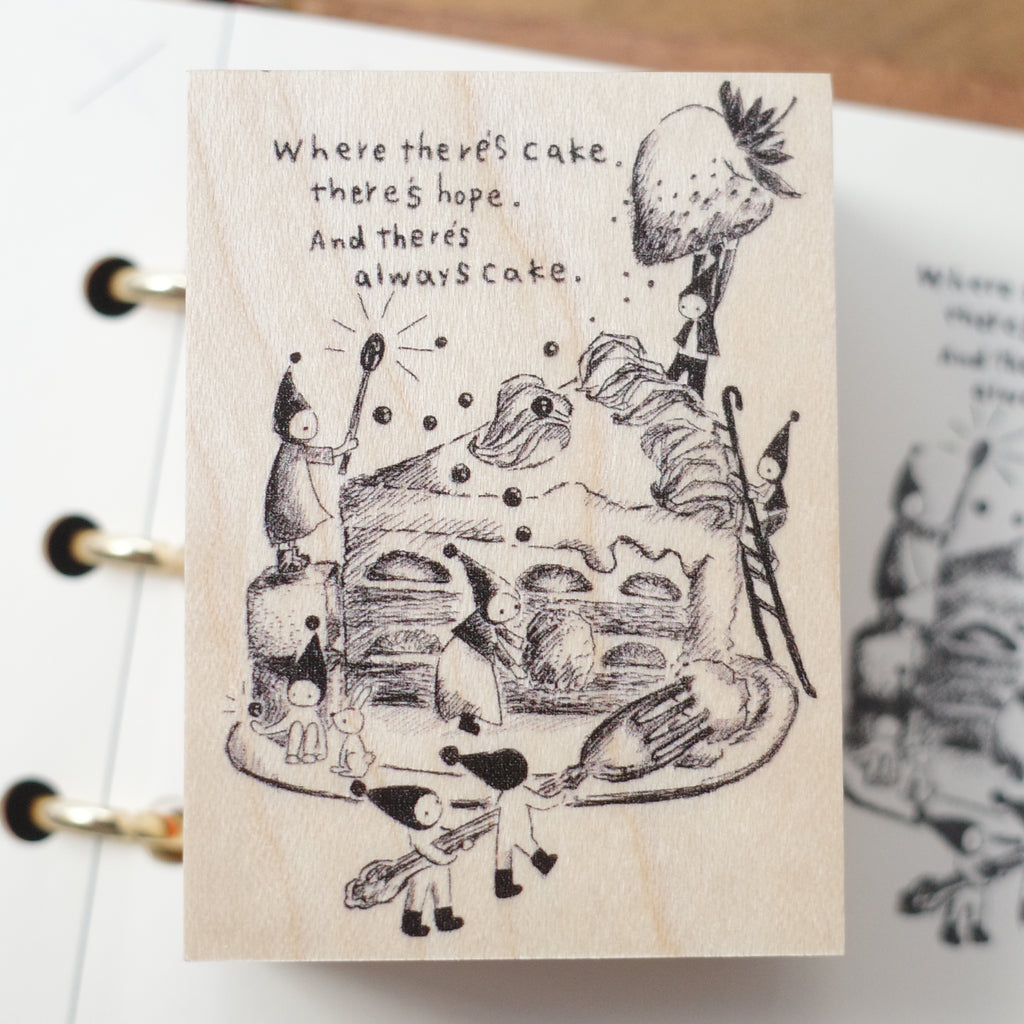 Where there's cake.
there's hope.
And there's
always cake.
Where
there's
And the